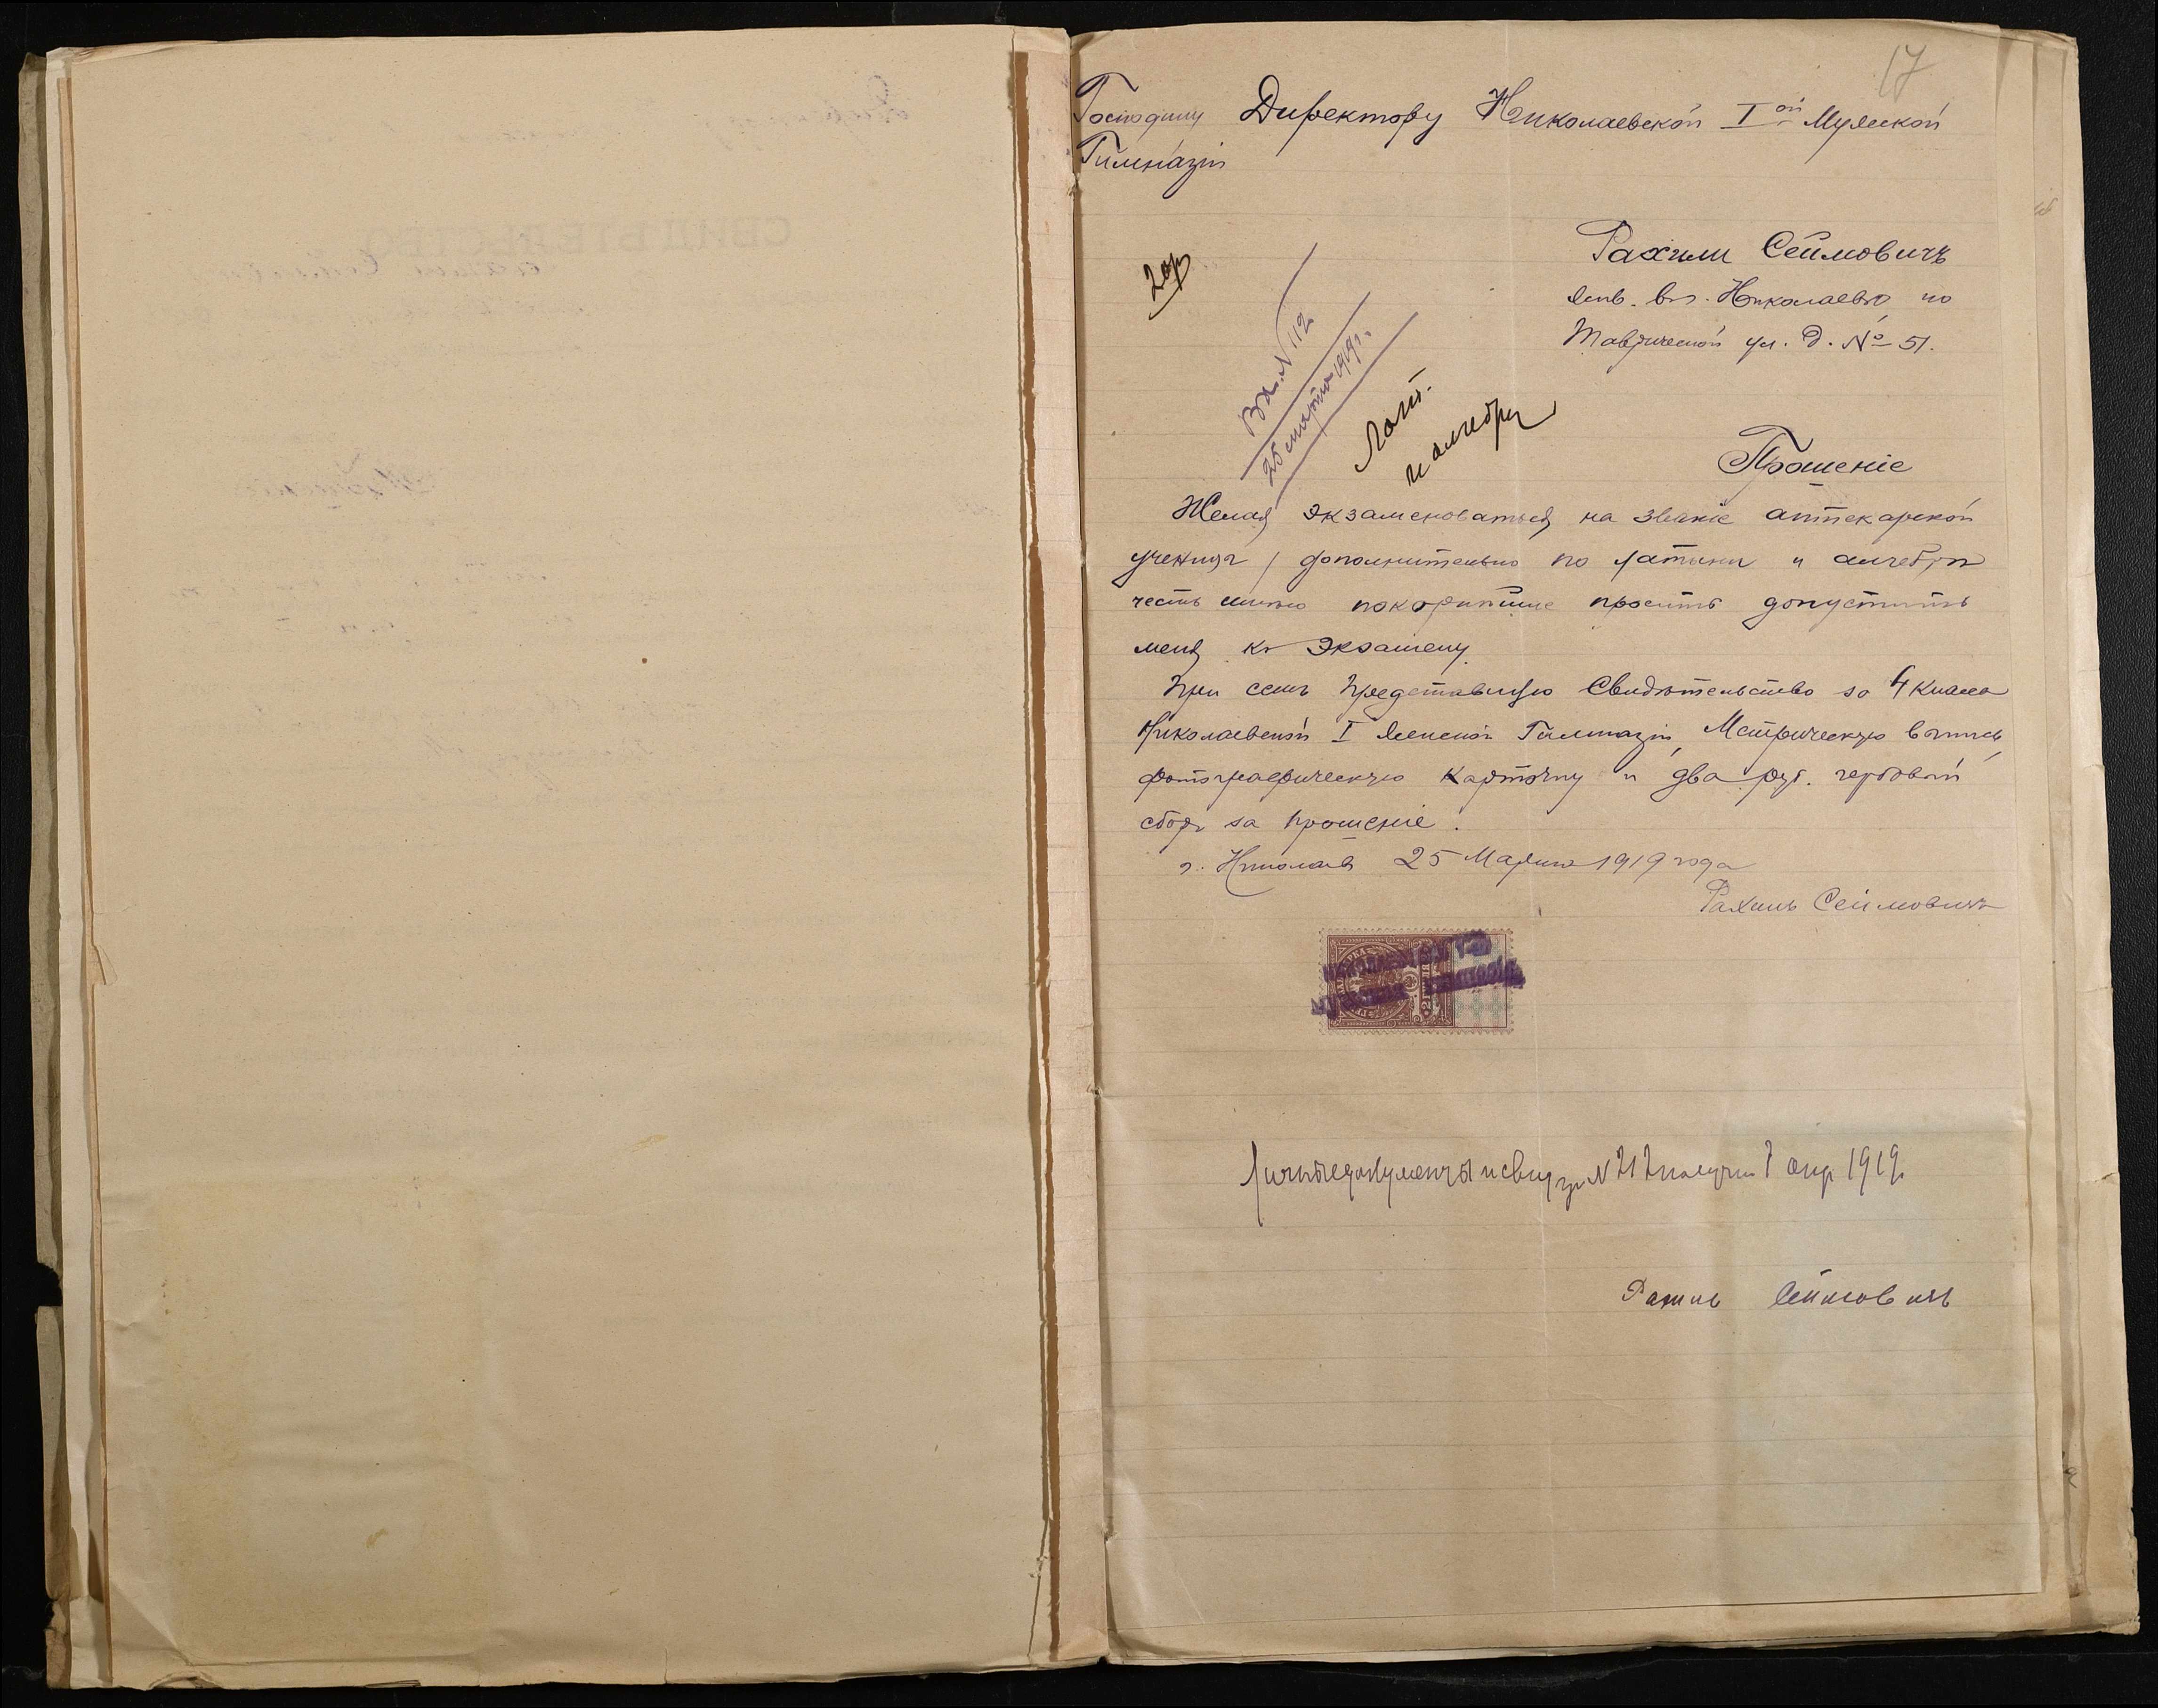 17
Господину Директору Николаевской I ой Мужской
Гимназіи
Рахили Сеймовичъ
жив. въ г. Николаевѣ по
Таврической ул. д. № 51.
Вх. N 112
25 марта 1919 г.
Лат.
и алгебру
Прошеніе
Желая экзаменоваться на званіе аптекарской
ученицы дополнительно по латыни и алгебрѣ
честь имѣю покорнѣйше просить допустить
меня къ экзамену.
При семъ представляю Свидѣтельство за 4 класса
Николаевской I Женской Гимназіи, Метрическую выпись,
фотографическую карточку и два руб. гербовый
сборъ за прошеніе.
г. Николаевъ 25 Марта 1919 года
Рахиль Сеймовичъ
Личные документы и свид за N 212 получил 7 апр 1919
Рахиль Сеймовичъ